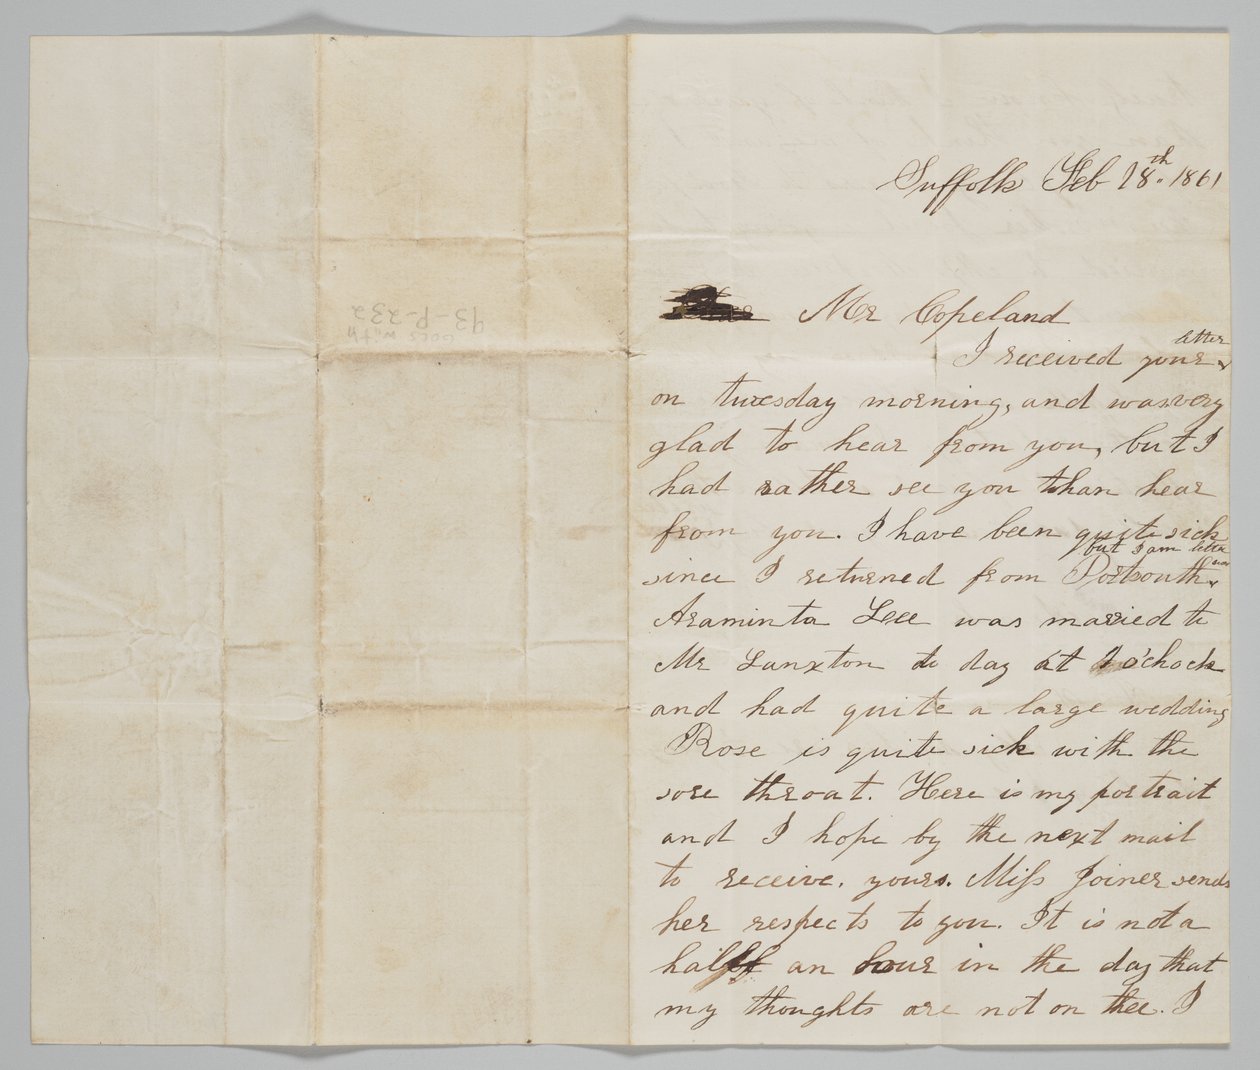 Suffolk Feb 18th. 1861
Mr Copeland
I received your letter
on tuesday morning, and was very
glad to hear from you, but I
had rather see you than hear
from you. I have been quite sick
since I returned from Portsouth but I am better now
Araminta Lee was married to
Mr Lanxton to day at 1 o'chock
and had quite a large wedding
Rose is quite sick with the
sore throat. Here is my portrait
and I hope by the next mail
to receive. yours. Miss Joiner sends
her respects to you. It is not a
half an hour in the day that
my thoughts are not on thee. I
Goes with
93-P-232